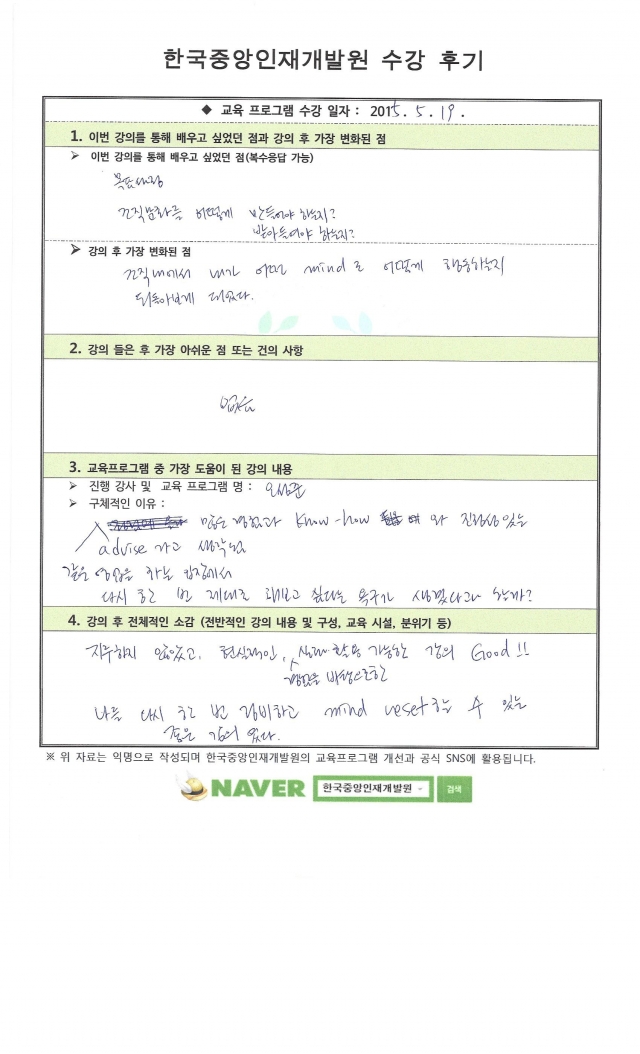 한국중앙인재개발원 수강 후기
◆ 교육 프로그램 수강 일자 : 2015. 5. 19.
1. 이번 강의를 통해 배우고 싶었던 점과 강의 후 가장 변화된 점
➢ 이번 강의를 통해 배우고 싶었던 점(복수응답 가능)
조직문화를 어떻게 만들어야 하는지?
받아들여야 하는지?
➢ 강의 후 가장 변화된 점
조직내에서 내가 어떤 mind로 어떻게 행동하는지
되돌아보게 되었다.
2. 강의 들은 후 가장 아쉬운 점 또는 건의 사항
없음
3. 교육프로그램 중 가장 도움이 된 강의 내용
➢ 진행 강사 및 교육 프로그램 명 :
➢ 구체적인 이유 :
많은 경험과 know-how 와 진정성있는
advise 라고 생각됨
같은 영업을 하는 입장에서
다시 한 번 제대로 해보고 싶다는 욕구가 생겼다고 할까?
4. 강의 후 전체적인 소감 (전반적인 강의 내용 및 구성, 교육 시설, 분위기 등)
지루하지 않았고, 현실적인, 실제 활용 가능한 강의 Good!!
경험을 바탕으로한
나를 다시 한 번 정비하고 mind reset 할 수 있는
좋은 강의 였다.
※ 위 자료는 익명으로 작성되며 한국중앙인재개발원의 교육프로그램 개선과 공식 SNS에 활용됩니다.
NAVER 한국중앙인재개발원 검색